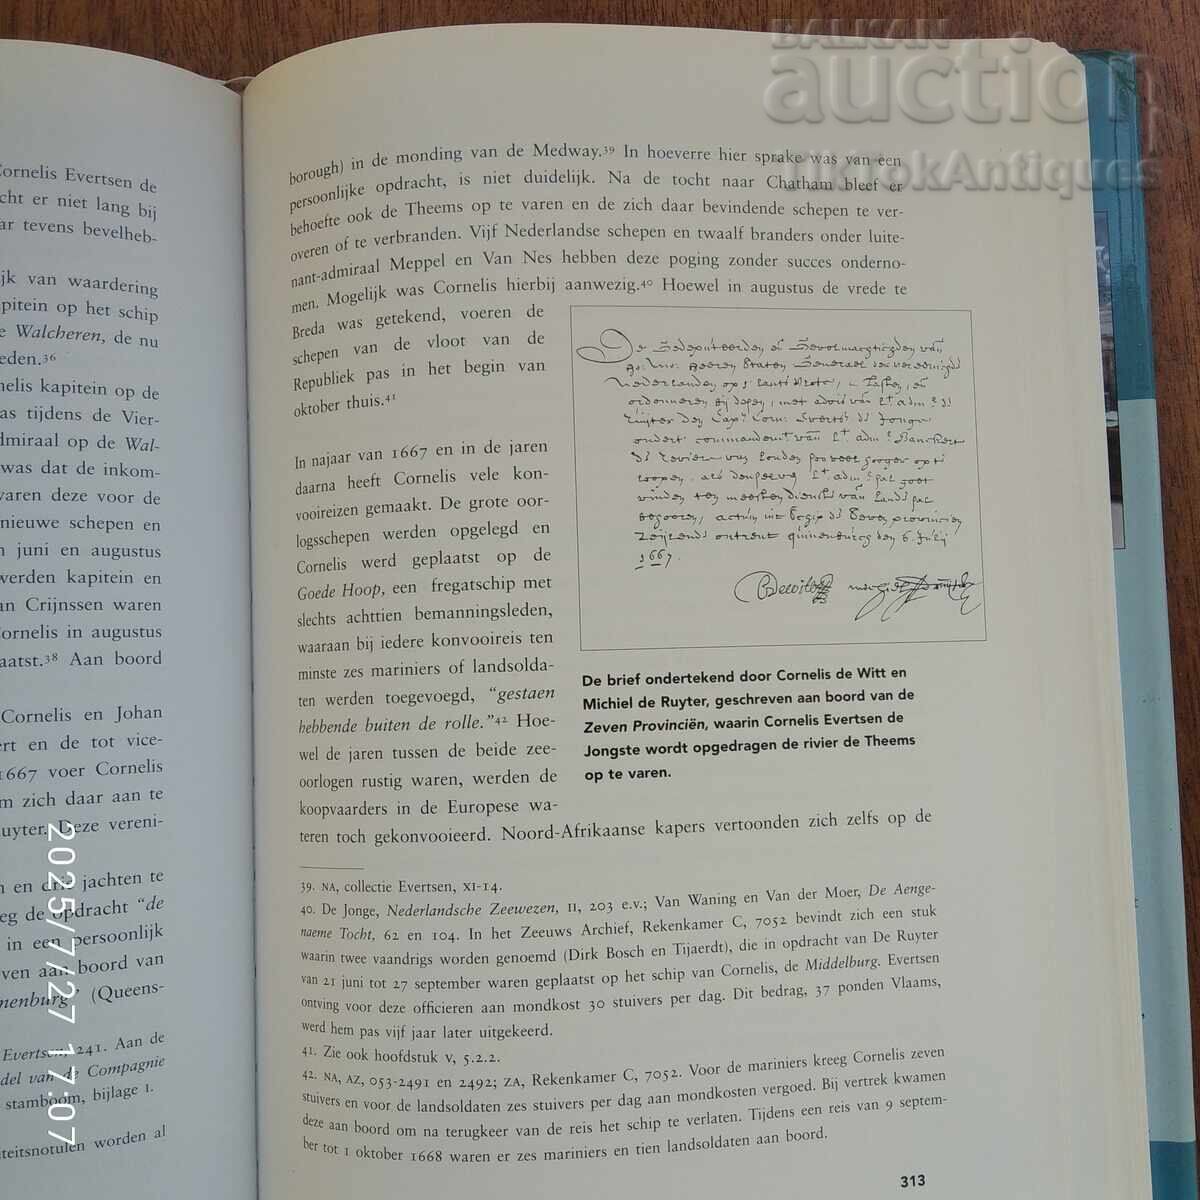 BALKAN
auction
TikTokAntiques
Cornelis Evertsen de
cht er niet lang bij
ar tevens bevelheb-
jk van waardering
pitein op het schip
e Walcheren, de nu
eden.36
nelis kapitein op de
as tijdens de Vier-
dmiraal op de Wal-
was dat de inkom-
varen deze voor de
nieuwe schepen en
n juni en augustus
werden kapitein en
an Crijnssen waren
Cornelis in augustus
aatst.38 Aan boord
Cornelis en Johan
ert en de tot vice-
1667 voer Cornelis
m zich daar aan te
uyter. Deze vereni-
n en drie jachten te
eg de opdracht “de
in een persoonlijk
ven aan boord van
nenburg (Queens-
Evertsen, 241. Aan de
del van de Compagnie
stamboom, bijlage 1.
teitsnotulen worden al
borough) in de monding van de Medway.39 In hoeverre hier sprake was van een
persoonlijke opdracht, is niet duidelijk. Na de tocht naar Chatham bleef er
behoefte ook de Theems op te varen en de zich daar bevindende schepen te ver-
overen of te verbranden. Vijf Nederlandse schepen en twaalf branders onder luite-
nant-admiraal Meppel en Van Nes hebben deze poging zonder succes onderno-
men. Mogelijk was Cornelis hierbij aanwezig.40 Hoewel in augustus de vrede te
Breda was getekend, voeren de
schepen van de vloot van de
Republiek pas in het begin van
oktober thuis.41
In najaar van 1667 en in de jaren
daarna heeft Cornelis vele kon-
vooireizen gemaakt. De grote oor-
logsschepen werden opgelegd en
Cornelis werd geplaatst op de
Goede Hoop, een fregatschip met
slechts achttien bemanningsleden,
waaraan bij iedere konvooireis ten
minste zes mariniers of landsolda-
ten werden toegevoegd, “gestaen
hebbende buiten de rolle.”42 Hoe-
wel de jaren tussen de beide zee-
oorlogen rustig waren, werden de
koopvaarders in de Europese wa-
teren toch gekonvooieerd. Noord-Afrikaanse kapers vertoonden zich zelfs op de
De Gedeputeerden en Gevolmachtigden van
Heeren Staten Generael der vereenigde
Nederlanden
ordonneren
Ruijter den Capt Corn: Everts de Jonge
ondert commandement van Lt adml Banckert
de Revier van Londen
Lt adml
vinden ten meesten dienste van
Seven provincien
6 Julij
1667.
De brief ondertekend door Cornelis de Witt en
Michiel de Ruyter, geschreven aan boord van de
Zeven Provinciën, waarin Cornelis Evertsen de
Jongste wordt opgedragen de rivier de Theems
op te varen.
39. NA, collectie Evertsen, XI-14.
40. De Jonge, Nederlandsche Zeewezen, II, 203 e.v.; Van Waning en Van der Moer, De Aenge-
naeme Tocht, 62 en 104. In het Zeeuws Archief, Rekenkamer C, 7052 bevindt zich een stuk
waarin twee vaandrigs worden genoemd (Dirk Bosch en Tijaerdt), die in opdracht van De Ruyter
van 21 juni tot 27 september waren geplaatst op het schip van Cornelis, de Middelburg. Evertsen
ontving voor deze officieren aan mondkost 30 stuivers per dag. Dit bedrag, 37 ponden Vlaams,
werd hem pas vijf jaar later uitgekeerd.
41. Zie ook hoofdstuk V, 5.2.2.
42. NA, AZ, 053-2491 en 2492; ZA, Rekenkamer C, 7052. Voor de mariniers kreeg Cornelis zeven
stuivers en voor de landsoldaten zes stuivers per dag aan mondkosten vergoed. Bij vertrek kwamen
deze aan boord om na terugkeer van de reis het schip te verlaten. Tijdens een reis van 9 septem-
ber tot 1 oktober 1668 waren er zes mariniers en tien landsoldaten aan boord.
313
2025/7/27 17:07